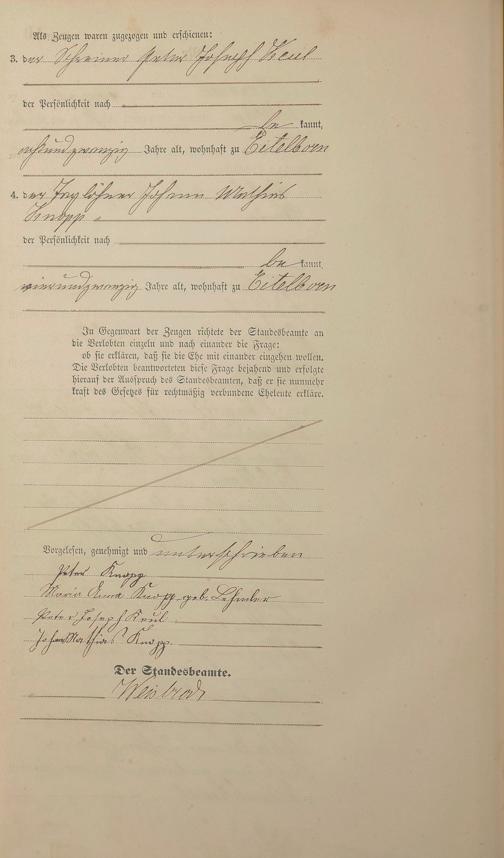 Als Zeugen waren zugezogen und erschienen:
3. der Schreiner Peter Joseph Keul
der Persönlichkeit nach
be kannt,
achtundzwanzig Jahre alt, wohnhaft zu Eitelborn
4. der Taglöhner Johann Mathias
Knopp
der Persönlichkeit nach
be kannt,
vierundzwanzig Jahre alt, wohnhaft zu Eitelborn
In Gegenwart der Zeugen richtete der Standesbeamte an
die Verlobten einzeln und nach einander die Frage:
ob sie erklären, daß sie die Ehe mit einander eingehen wollen.
Die Verlobten beantworteten diese Frage bejahend und erfolgte
hierauf der Ausspruch des Standesbeamten, daß er sie nunmehr
kraft des Gesetzes für rechtmäßig verbundene Eheleute erkläre.
Vorgelesen, genehmigt und unterschrieben
Peter Knopp
Maria Anna Knopp geb. Lehmler
Peter Joseph Keul
Johan Mathias Knopp.
Der Standesbeamte.
Weisbrod